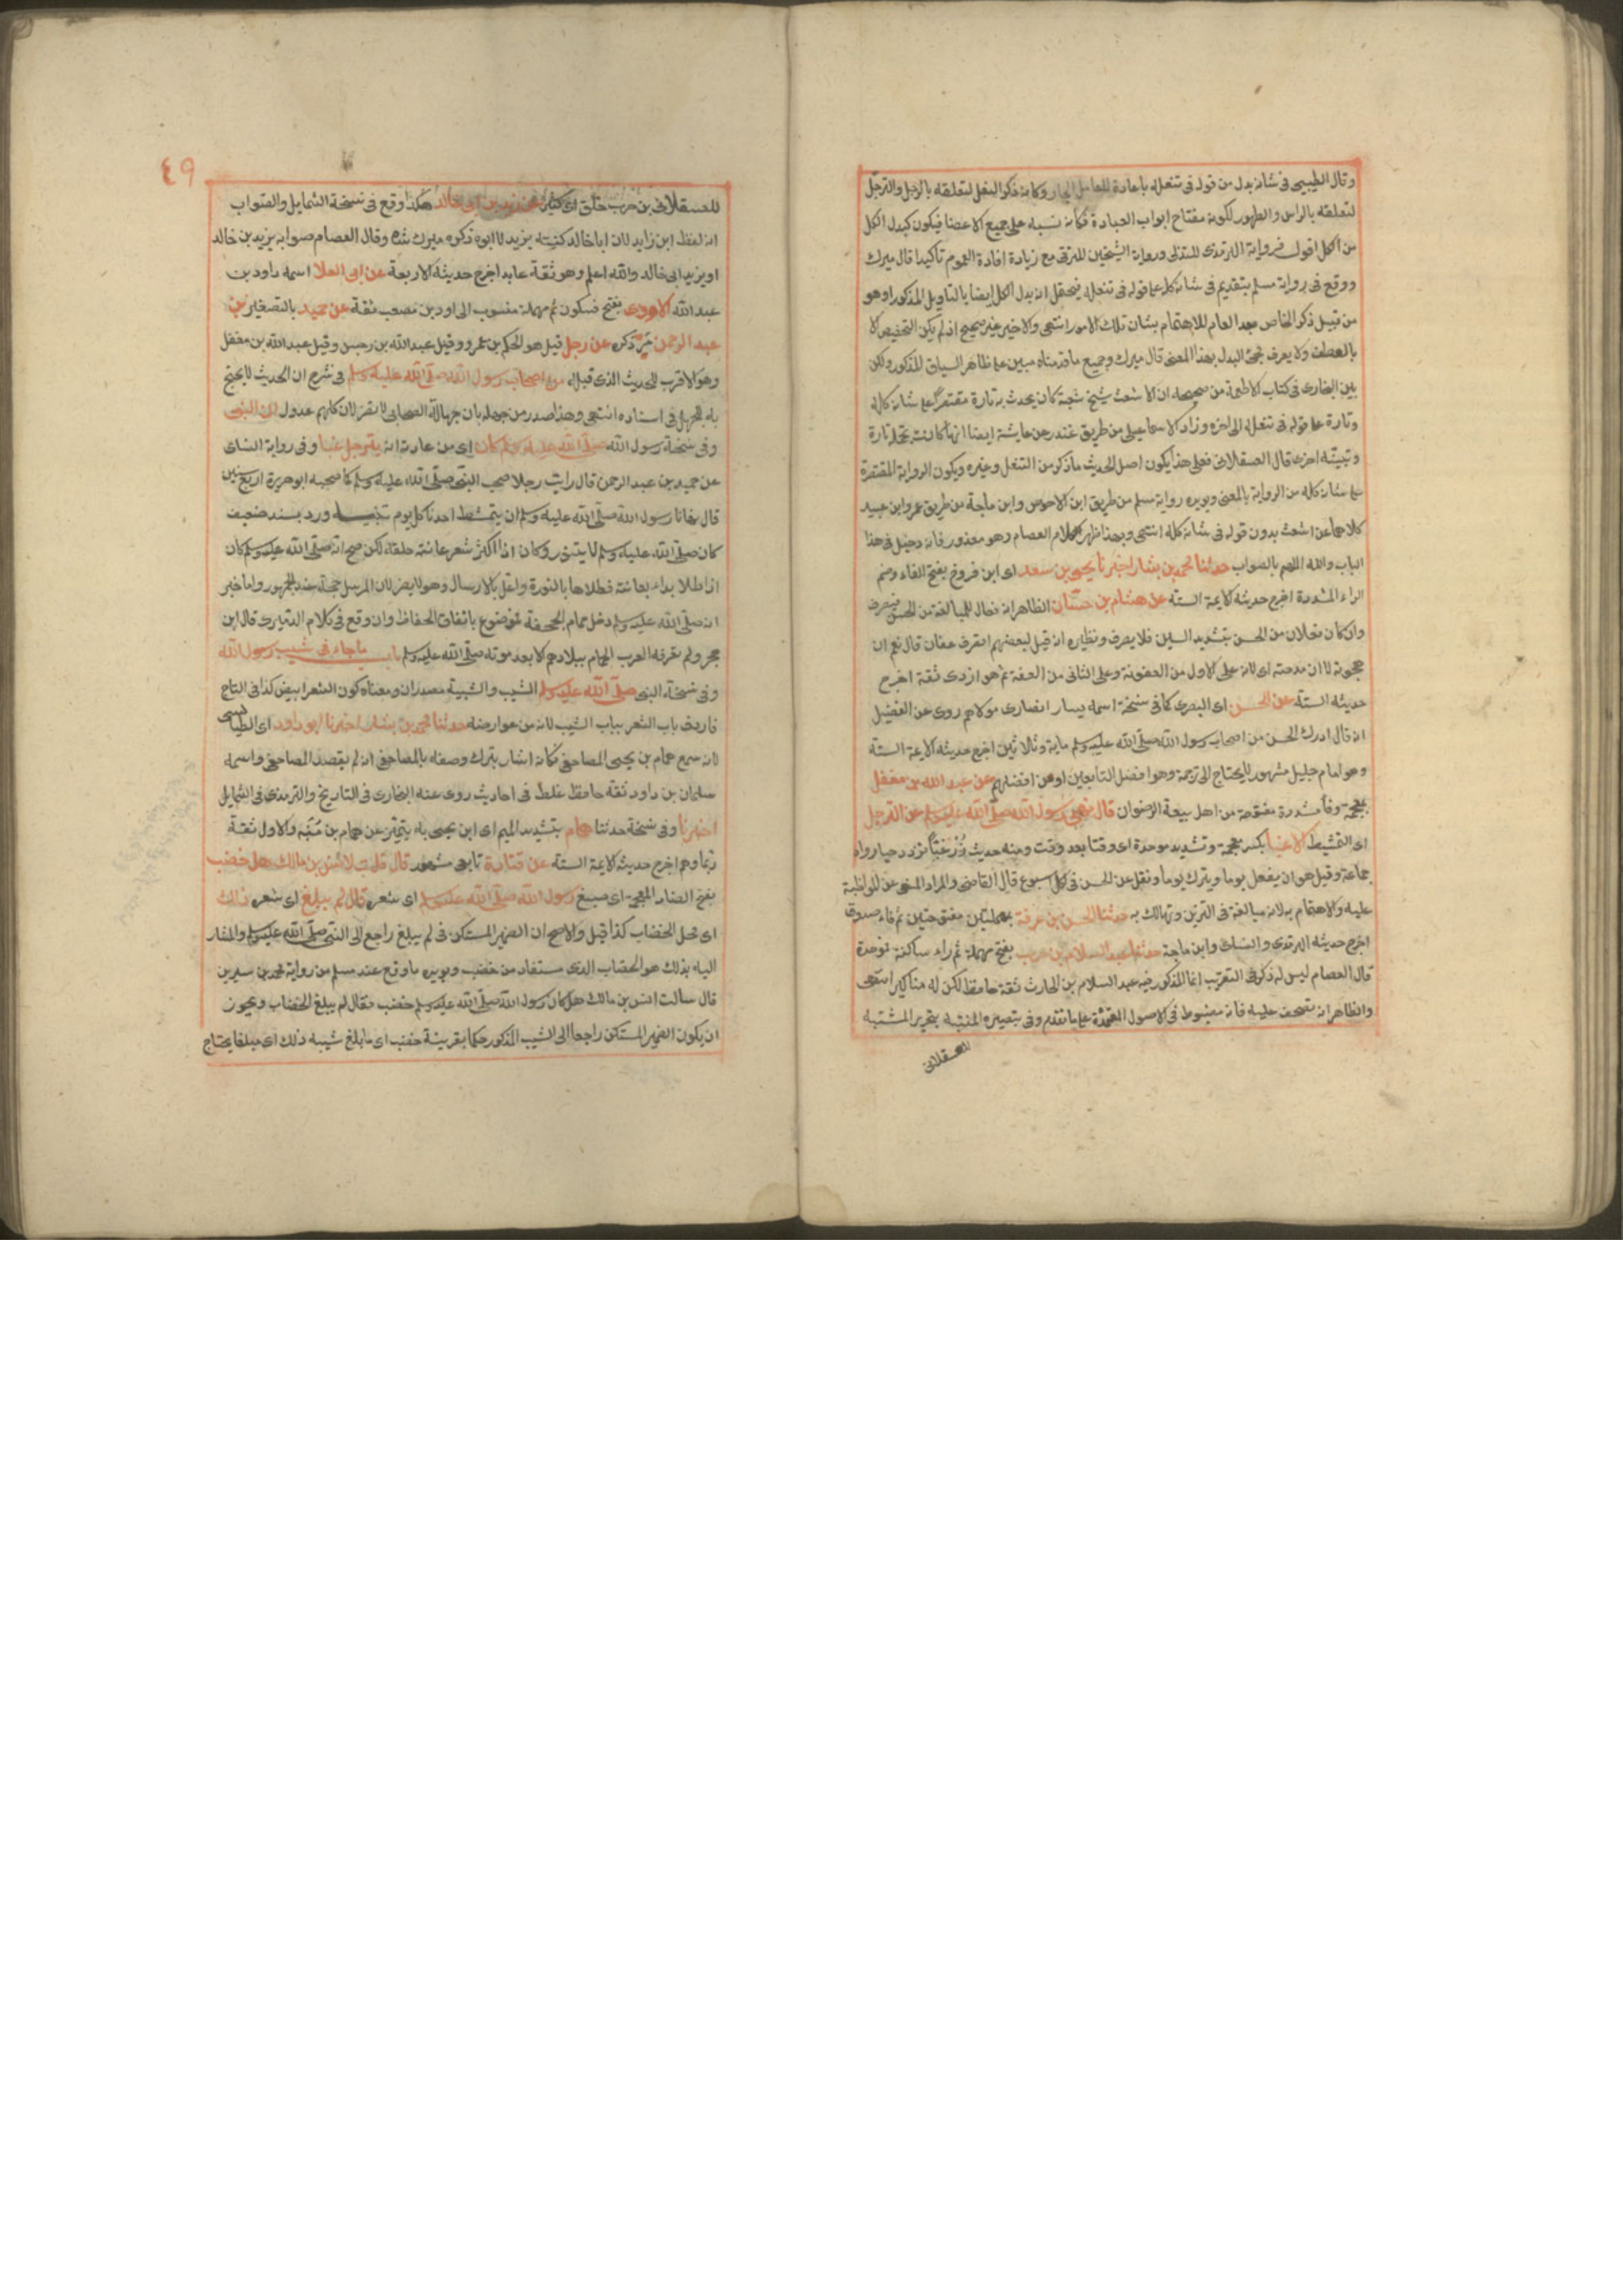 وقال الطيبي في شانه بدل من قوله في تنعله باعادة العامل الجار وكانه ذكر التنعل لتعلقه بالرجل والترجل
لتعلقه بالراس والطهور لكونه مفتاح ابواب العبادة فكانه نسبه على جميع الاعضا فيكون كبدل الكل
من الكل اقول فرواية الترمذى للتدلى ورواية الشيخين للترقى مع زيادة افادة العموم تأكيدا قال ميرك
ووقع في رواية مسلم بتقديم في شانه كله على قوله في تنعله فيحتمل انه بدل الكل ايضا بالتاويل المذكور او هو
من قبيل ذكر الخاص بعد العام للاهتمام بشان تلك الامور انتهى والاخير غير صحيح اذ لم يكن التخصيص الا
بالعطف ولا يعرف مجئ البدل بهذا المعنى قال ميرك وجميع ما قدمناه مبين على ظاهر السياق المذكور ولكن
بين البخارى في كتاب الاطعمة من صحيحه ان الاشعث شيخ شعبة كان يحدث به تارة مقتصرا على شانه كله
وتارة على قوله في تنعله الى اخره وزاد الاسماعيلى من طريق غندر عن عايشة ايضا انها كانت تجمله تارة
وتبينه اخرى قال العسقلانى فعلى هذا يكون اصل الحديث ما ذكر من التنعل وغيره ويكون الرواية المقتصرة
على شانه كله من الرواية بالمعنى ويويده رواية مسلم من طريق ابى الاحوص وابن ماجة من طريق عمرو ابن عبيد
كلاهما عن اشعث بدون قوله في شانه كله انتهى وبهذا ظهر كلام العصام وهو معذور فانه دخيل في هذا
الباب والله الملهم بالصواب حدثنا محمد بن بشار اخبرنا يحيى بن سعيد اى ابن فروخ بفتح الفاء وضم
الراء المشددة اخرج حديثه الايمة الستة عن هشام بن حسان الظاهر انه فعال للمبالغة من الحسن فيصرف
وان كان فعلان من الحس بتشديد السين فلا يصرف ونظيره انه قيل لبعضهم اتصرف عفان قال نعم ان
هجوته لا ان مدحته اى لانه على الاول من العفونة وعلى الثانى من العفة ثم هو ازدى ثقة اخرج
حديثه الستة عن الحسن اى البصرى كما في نسخة اسمه يسار انصارى مولاهم روى عن الفضيل
انه قال ادرك الحسن من اصحاب رسول الله صلى الله عليه وسلم ماية وثلاثين اخرج حديثه الايمة الستة
وهو امام جليل مشهور لا يحتاج الى ترجمة وهو افضل التابعين او من افضلهم عن عبد الله بن مغفل
بمعجمة وفاء مشددة مفتوحة من اهل بيعة الرضوان قال نهى رسول الله صلى الله عليه وسلم عن الترجل
اى التمشيط الا غبا بكسر معجمة وتشديد موحدة اى وقتا بعد وقت ومنه حديث زر غبا تزدد حبا رواه
جماعة وقيل هو ان يفعل يوما ويترك يوما ونقل عن الحسن في كل اسبوع قال القاضى والمراد النهى عن المواظبة
عليه والاهتمام به لانه مبالغة في التزين وتهالك به حدثنا الحسن بن عرفة بمهملتين مفتوحتين ثم فاء صدوق
اخرج حديثه الترمذى والنساى وابن ماجة حدثنا عبد السلام بن حرب بفتح مهملة ثم راء ساكنة فوحدة
قال العصام ليس له ذكر في التقريب انما المذكور فيه عبد السلام بن الحارث ثقة حافظ لكن له مناكير انتهى
والظاهر انه تصحف عليه فانه مضبوط في الاصول المعتمدة على ما تقدم وفي تبصير المنتبه بتحرير المشتبه
للعسقلانى
٤٩
للعسقلانى بن حرب خلق اى كثير عن يزيد بن ابى خالد هكذا وقع في نسخة الشمايل والصواب
ان لفظ ابن زايد لان ابا خالد كنيته يزيد لا ابوه ذكره ميرك شاه وقال العصام صوابه يزيد بن خالد
او يزيد ابى خالد والله اعلم وهو ثقة عابد اخرج حديثه الاربعة عن ابى العلا اسمه داود بن
عبد الله الاودى بفتح فسكون ثم مهملة منسوب الى اود بن مصعب ثقة عن حميد بالتصغير بن
عبد الرحمن مر ذكره عن رجل قيل هو الحكم بن عمرو وقيل عبد الله بن سرجس وقيل عبد الله بن مغفل
وهو الاقرب للحديث الذى قبله من اصحاب رسول الله صلى الله عليه وسلم في شرح ان الحديث لا يحتج
به للجهل في اسناده انتهى وهذا صدر من جهله بان جهالة الصحابى لا تضر لان كلهم عدول ان النبى
وفي نسخة رسول الله صلى الله عليه وسلم كان اى من عادته انه يترجل غبا وفي رواية النساى
عن حميد بن عبد الرحمن قال رايت رجلا صحب النبى صلى الله عليه وسلم كما صحبه ابو هريرة اربع سنين
قال نهانا رسول الله صلى الله عليه وسلم ان يتمشط احدنا كل يوم تنبيه ورد بسند ضعيف
كان صلى الله عليه وسلم لا يتنور وكان اذا كثر شعر عانته حلقه لكن صح انه صلى الله عليه وسلم كان
اذا طلا بداء بعانته فطلاها بالنورة واعل بالارسال وهو لا يضر لان المرسل حجة عند الجمهور واما خبر
انه صلى الله عليه وسلم دخل حمام الجحفة فموضوع باتفاق الحفاظ وان وقع في كلام الدميرى قال ابن
حجر ولم تعرف العرب الحمام ببلادهم الا بعد موته صلى الله عليه وسلم باب ما جاء في شيب رسول الله
وفي نسخة النبى صلى الله عليه وسلم الشيب والشيبة مصدران ومعناه كون الشعر ابيض كذا في التاج
فاردف باب الشعر بباب الشيب لانه من عوارضه حدثنا محمد بن بشار اخبرنا ابو داود اى الطيالسى
لانه سمع همام بن يحيى المصاحفى فكانه اشار بترك وصفه بالمصاحفى انه لم يقصد المصاحفى واسمه
سليمان بن داود ثقة حافظ غلط في احاديث روى عنه البخارى في التاريخ والترمذى في الشمايل
اخبرنا وفي نسخة حدثنا همام بتشديد الميم اى ابن يحيى به يتميز عن همام بن منبه والاول ثقة
ربما وهم اخرج حديثه الايمة الستة عن قتادة تابعى مشهور قال قلت لانس بن مالك هل خضب
بفتح الضاد المعجمة اى صبغ رسول الله صلى الله عليه وسلم اى شعره قال لم يبلغ اى شعره ذلك
اى محل الخضاب كذا قيل والاصح ان الضمير المستكن في لم يبلغ راجع الى النبى صلى الله عليه وسلم والمشار
اليه بذلك هو الخضاب الذى مستفاد من خضب ويويده ما وقع عند مسلم من رواية محمد بن سيرين
قال سالت انس بن مالك هل كان رسول الله صلى الله عليه وسلم خضب فقال لم يبلغ الخضاب ويجوز
ان يكون الضمير المستكن راجعا الى الشيب المذكور حكما بقرينة خضب اى ما بلغ شيبه ذلك اى مبلغا يحتاج